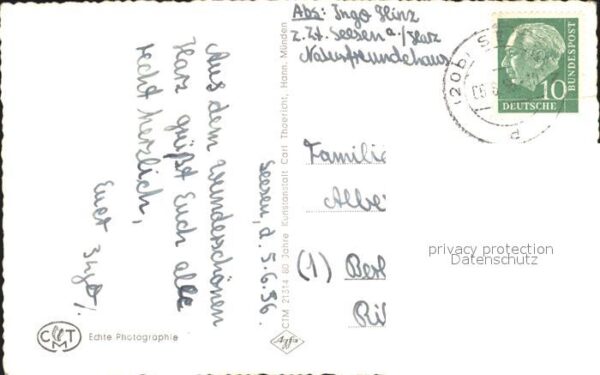 Abs: Ingo Hinz
z. Zt. Seesen a./Harz
Naturfreundehaus
(20b) SE
10
DEUTSCHE
BUNDESPOST
Seesen, d. 5.6.56.
Aus dem wunderschönen
Harz grüßt Euch alle
recht herzlich,
Euer Ingo.
CTM 21314 80 Jahre Kunstanstalt Carl Thoericht, Hann. Münden
Familie
Albe
(1) Berl
privacy protection
Datenschutz
CTM
Echte Photographie